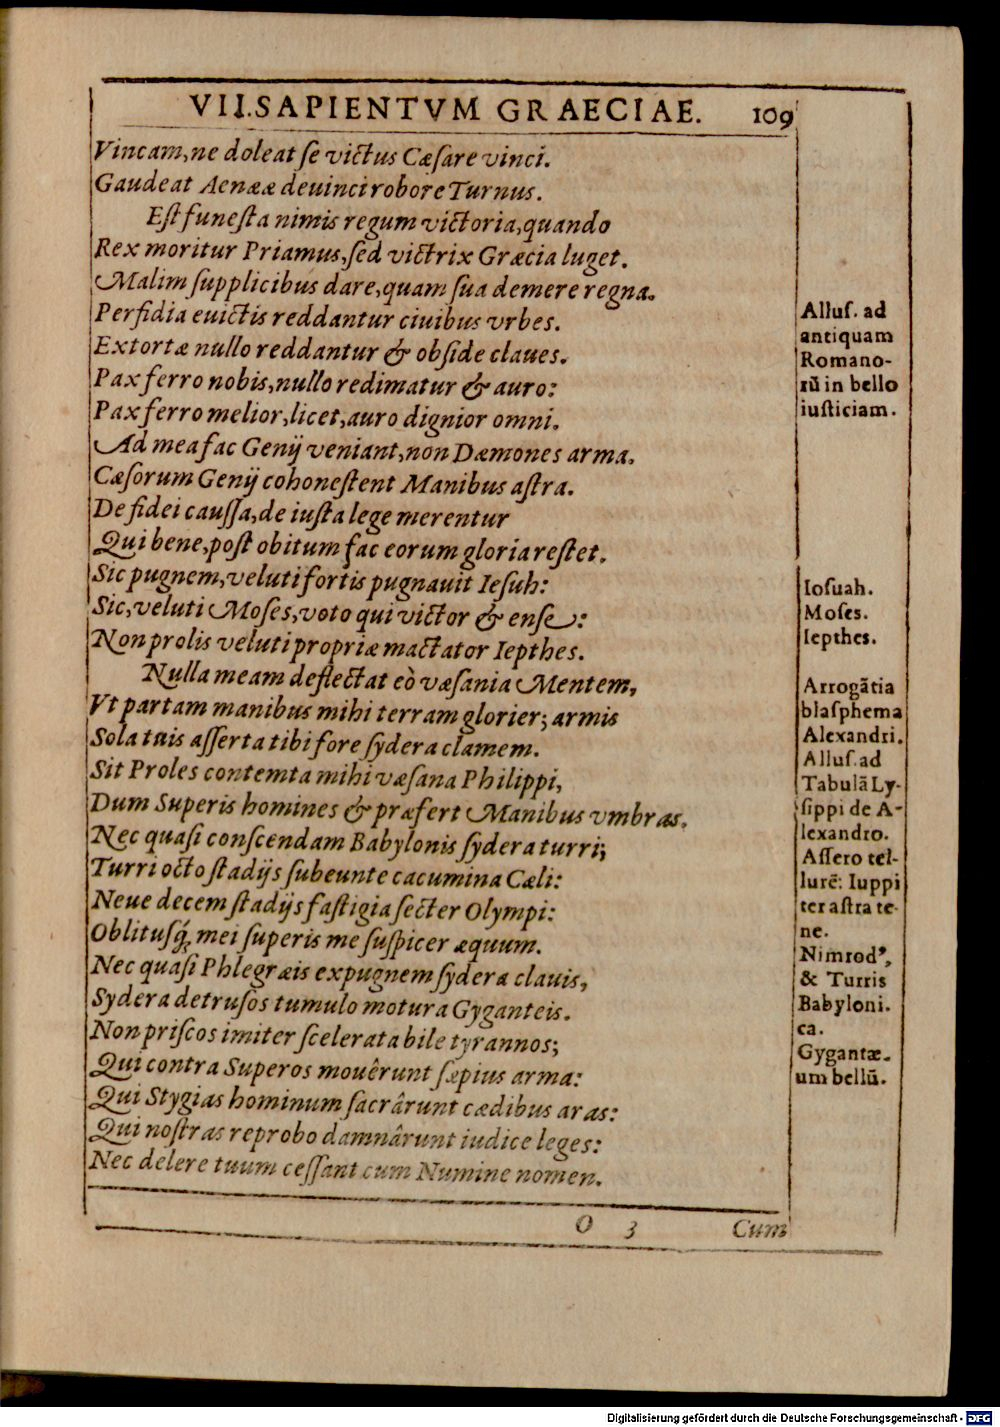 VII.SAPIENTVM GRAECIAE. 109
Vincam,ne doleat ſe victus Cæſare vinci.
Gaudeat Aenææ deuinci robore Turnus.
Eſt funeſta nimis regum victoria,quando
Rex moritur Priamus,ſed victrix Græcia luget.
Malim ſupplicibus dare,quam ſua demere regna.
Perfidia euictis reddantur ciuibus vrbes.
Extortæ nullo reddantur & obſide claues.
Pax ferro nobis,nullo redimatur & auro:
Pax ferro melior,licet,auro dignior omni.
Ad mea fac Genij veniant,non Dæmones arma.
Cæſorum Genij cohoneſtent Manibus aſtra.
De fidei cauſſa,de iuſta lege merentur
Qui bene,poſt obitum fac eorum gloria reſtet.
Sic pugnem,veluti fortis pugnauit Ieſuh:
Sic,veluti Moſes,voto qui victor & enſe:
Non prolis veluti propriæ mactator Iepthes.
Nulla meam deflectat eò væſania Mentem,
Vt partam manibus mihi terram glorier; armis
Sola tuis aſſerta tibi fore ſydera clamem.
Sit Proles contemta mihi væſana Philippi,
Dum Superis homines & præfert Manibus vmbras.
Nec quaſi conſcendam Babylonis ſydera turri;
Turri octo ſtadijs ſubeunte cacumina Cæli:
Neue decem ſtadijs faſtigia ſecter Olympi:
Oblitusq́; mei ſuperis me ſuſpicer æquum.
Nec quaſi Phlegræis expugnem ſydera clauis,
Sydera detruſos tumulo motura Gyganteis.
Non priſcos imiter ſcelerata bile tyrannos;
Qui contra Superos mouêrunt ſæpius arma:
Qui Stygias hominum ſacrârunt cædibus aras:
Qui noſtras reprobo damnârunt iudice leges:
Nec delere tuum ceſſant cum Numine nomen.
O 3 Cum
Alluſ. ad
antiquam
Romano-
rũ in bello
iuſticiam.
Ioſuah.
Moſes.
Iepthes.
Arrogãtia
blaſphema
Alexandri.
Alluſ.ad
Tabulã Ly-
ſippi de A-
lexandro.
Aſſero tel-
lurẽ: Iuppi
ter aſtra te-
ne.
Nimrodꝰ,
& Turris
Babyloni.
ca.
Gygantæ-
um bellũ.
Digitalisierung gefördert durch die Deutsche Forschungsgemeinschaft - DFG